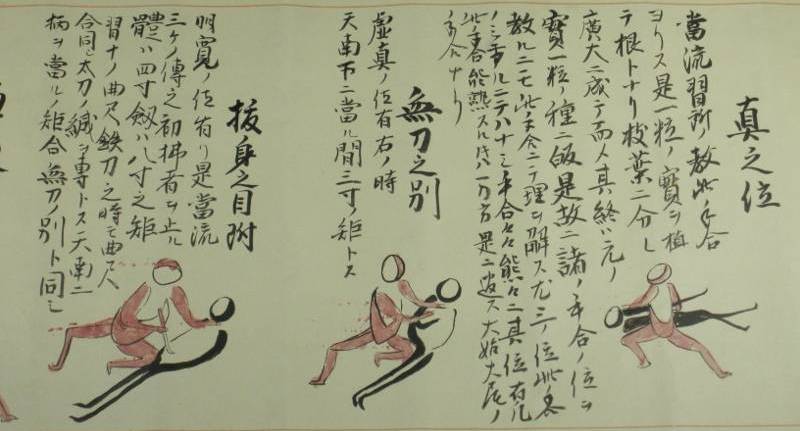 真之位
當流習所ノ教此手合
ヨリス是一粒ノ寳ヲ植
テ根トナリ枝葉ニ分レ
廣大ニ成テ而人真終ハ元ノ
寳一粒ノ種ニ皈是故ニ諸ノ手合ノ位ヲ
教ルニモ此手合ニテ理ヲ解ス尤三ノ位此
ノミ ルニテハナシ手合々々能々ニ其位有
此手合能熟スル 一万方是ニ 大始大
手合ナリ
無刀之別
虚真ノ位有右ノ時
天南下ニ當ル間三寸ノ矩トス
抜身之目附
明寛ノ位有リ是當流
三ケノ傳之初拂者ヲ止ル
體ハ四寸劔ハ八寸之矩
習十ノ曲尺鉄刀之時モ曲尺
合同シ太刀ノ縅ヲ専トス天南ニ
柄ヲ當ルノ矩合無刀ノ別ト同シ